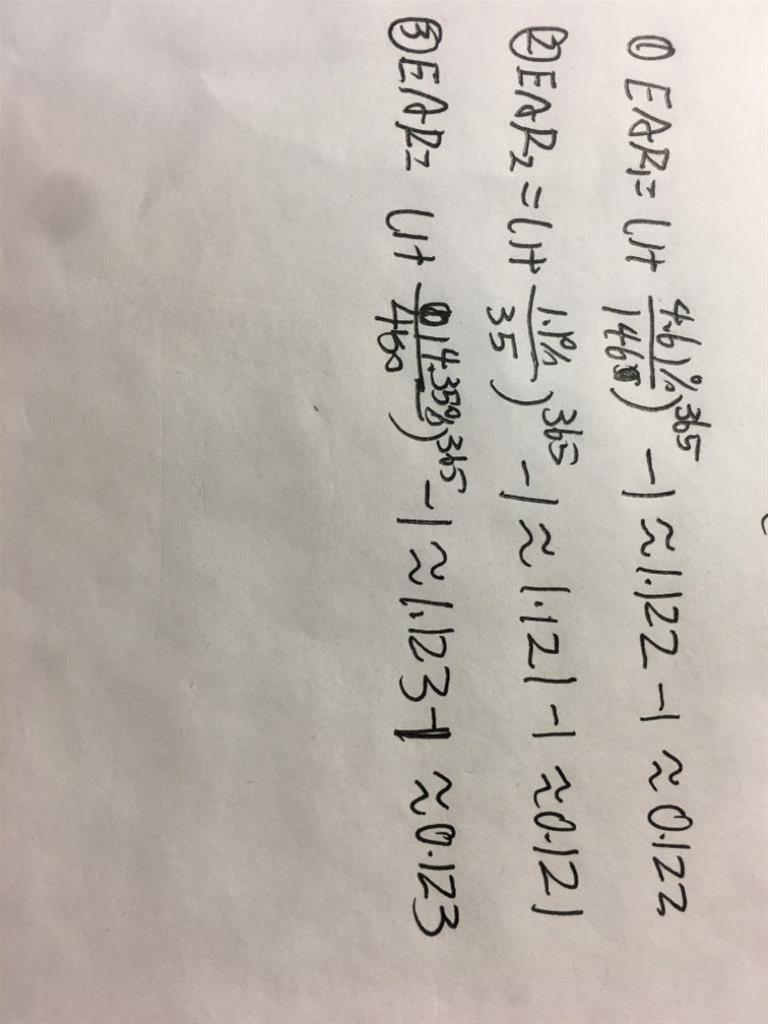 ① EAR₁= (1+ 4.61%/1460)^365 -1 ≈1.122 -1 ≈ 0.122
② EAR₂ = (1+ 1.1%/35)^365 -1 ≈ 1.121 -1 ≈0.121
③ EAR= (1+ 14.35%/460)^365 -1 ≈1.123-1 ≈0.123